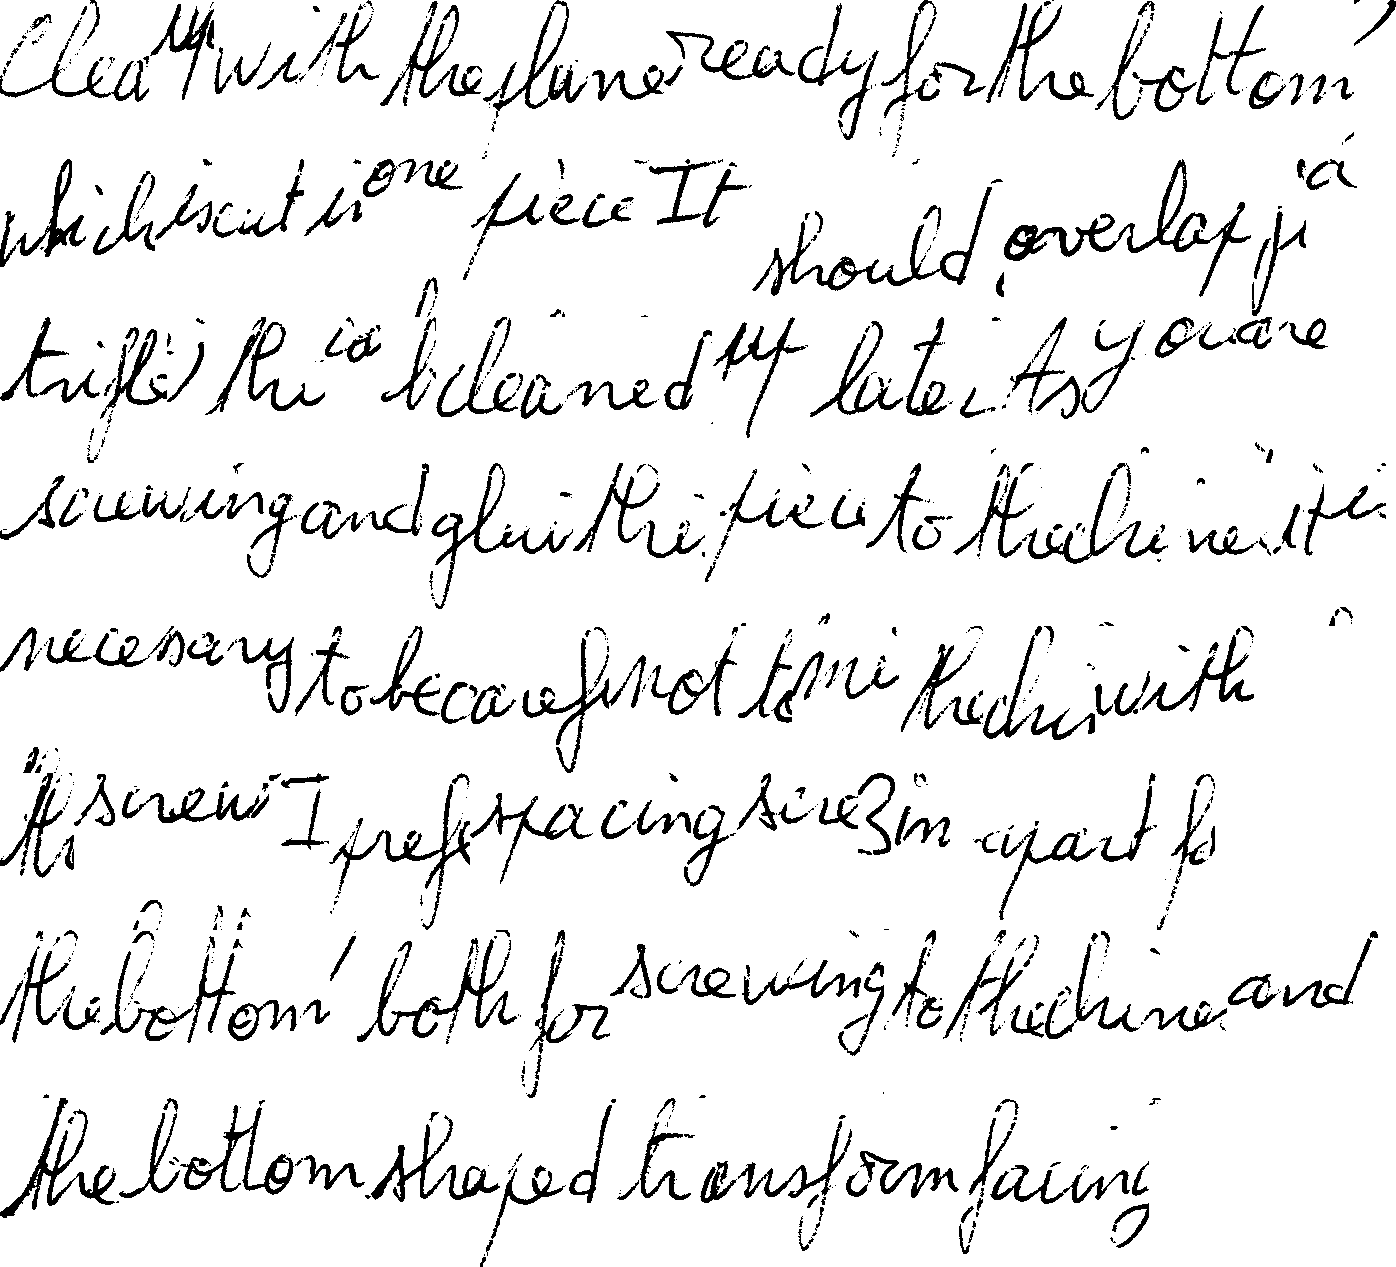 Clea up with the plane ready for the bottom,
which is cut in one piece It should, overlap ju a
trifle, the is b cleaned up later. As you are
screwing and glui the piece to the chine, it is
necessary to be caref not to mi the chin with
the screw I prefe spacing scre 3 in apart fo
the bottom, both for screwing to the chine and
the bottom shaped transform facing